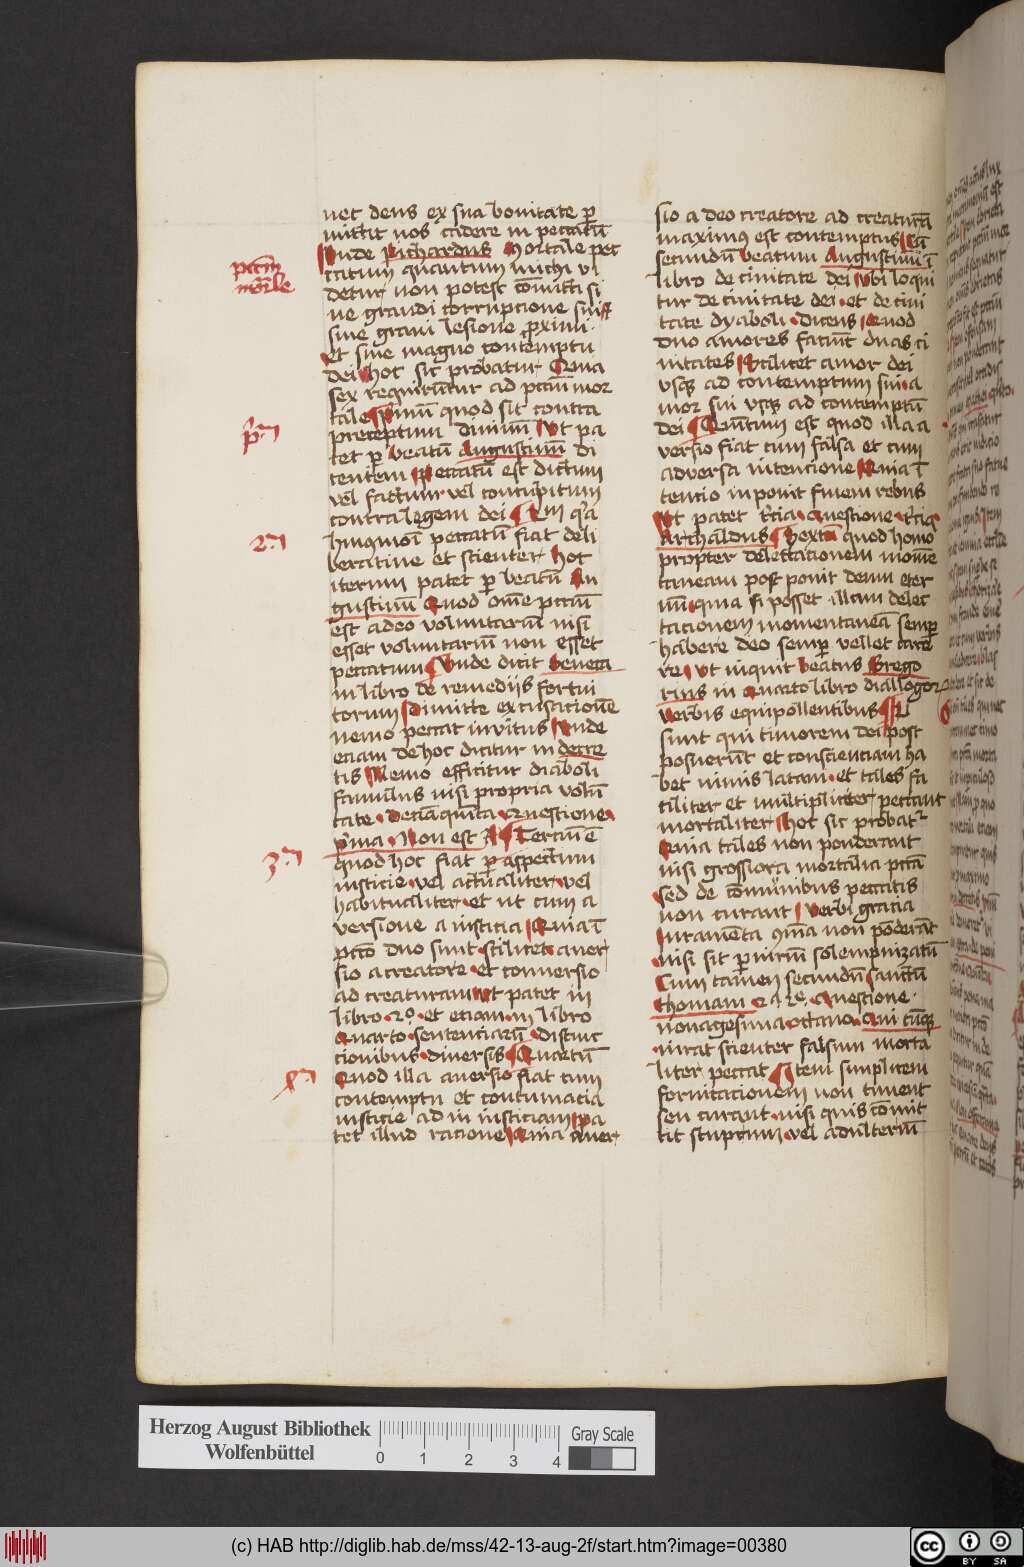 pctm
mortale
uet deus ex sua bonitate p̄
mittit nos cadere in peccatū
Unde Richardus Mortale pec
catum quantum michi vi
detur non potest cōmitti si
ne grandi corrupcione sui
sine graui lesione p̄ximi
et sine magno contemptu
dei hoc sic probatur Quia
sex requirūtur ad pctm̄ mor
tale Primū quod sit contra
preceptum diuinū Vt pa
tet p̄ beatū Augustinū di
centem Peccatū est dictum
vel factum vel concupitum
contra legem dei
2m
huiusmoī peccatū fiat deli
beratiue et scienter hoc
iterum patet p̄ beatū Au
gustinū Quod om̄e pctm̄
est adeo voluntariū nisi
esset voluntariū non esset
peccatum Unde dicit Seneca
in libro de remedijs fortui
torum Dimitte excusacionē
nemo peccat invitus Unde
eciam de hoc dicitur in decre
tis Nemo efficitur diaboli
famulus nisi propria volū
tate decīaquīta Questione
p̄ma Non est Terciū ē
3m
quod hoc fiat p̄ aspectum
iusticie vel actualiter vel
habitualiter et ut cum a
versione a iusticia Quia ī
pctō duo sunt scilicet aver
sio a creatore et conversio
ad creaturam vt patet in
libro 2o et eciam in libro
Quarto sentenciarū distinc
cionibus diversis Quartū
Quod illa aversio fiat cum
contemptu et contumacia
iusticie ad in iusticiam pa
tet illud racione Quia aver
sio a deo creatore ad creaturā
maximus est contemptus
secundū beatum Augustinū ī
libro de ciuitate dei vbi loqui
tur de ciuitate dei et de ciui
tate dyaboli dicens Quod
duo amores faciūt duas ci
uitates Scilicet amor dei
vsq ad contemptum sui a
mor sui vsq ad contemptū
dei Quintum est quod illa a
versio fiat cum falsa et cum
adversa intencione Quia ī
tencio inponit finem rebus
Vt patet t̄cia Questione
Archaldus Sextū quod homo
propter delectacionem mome
taneam post ponit deum eter
num quia si posset illam delec
tacionem momentaneā semp̄
habere deo semp̄ vellet care
re Vt inquit beatus Grego
rius in quarto libro diallogor
verbis equipollentibus
sunt qui timorem dei post
posuerūt et conscienciam ha
bet nimis latam et tales fa
ciliter et multipliciter peccant
mortaliter hoc sic probat
Quia tales non ponderant
nisi grossiora mortalia pctā
sed de cōmunibus peccatis
non curant verbi gracia
Iuramēta qm̄a non pōderāt
nisi sit p̄iuriū solempnizatū
Cum tamen secundū sanctū
thomam 2a 2e Questione
nonagesima octava Qui cūq
iurat scienter falsum morta
liter peccat Item simplicem
fornicacionem non timent
seu curant nisi quis cōmit
tit stuprum vel adulteriū
Herzog August Bibliothek
Wolfenbüttel
0 1 2 3 4
Gray Scale
(c) HAB http://diglib.hab.de/mss/42-13-aug-2f/start.htm?image=00380
cc BY SA